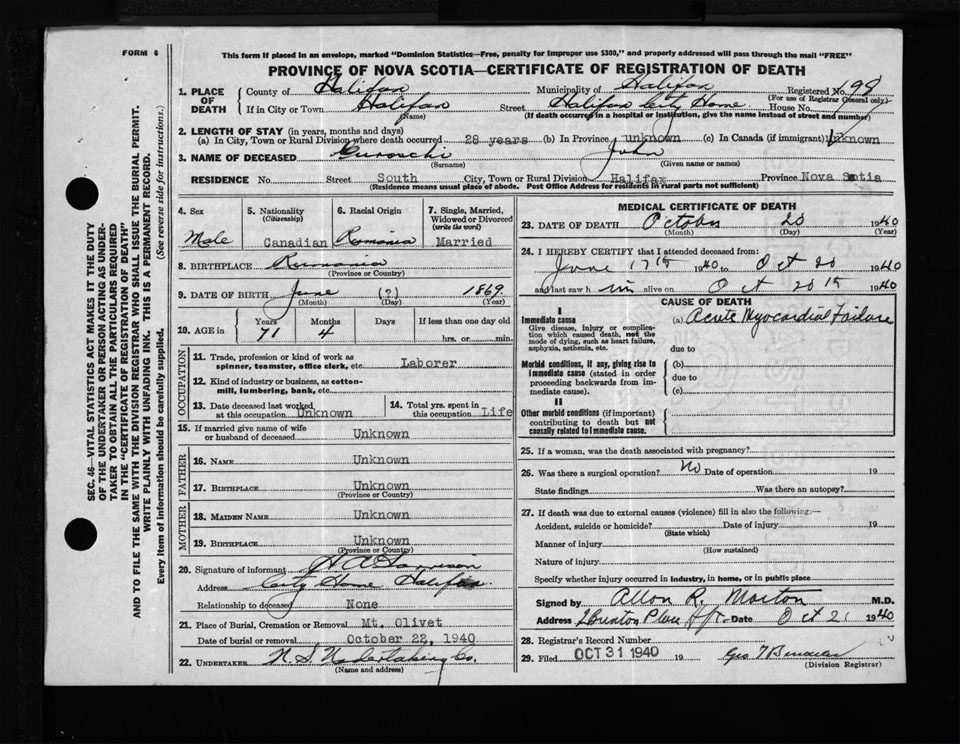 FORM 6
This form if placed in an envelope, marked "Dominion Statistics—Free, penalty for improper use $300," and properly addressed will pass through the mail "FREE"
PROVINCE OF NOVA SCOTIA—CERTIFICATE OF REGISTRATION OF DEATH
1. PLACE OF DEATH
County of Halifax Municipality of Halifax Registered No.
(For use of Registrar General only)
If in City or Town Halifax Street Halifax City Home House No.
(Name) (If death occurred in a hospital or institution, give the name instead of street and number)
2. LENGTH OF STAY (in years, months and days)
(a) In City, Town or Rural Division where death occurred 28 years (b) In Province unknown (c) In Canada (if immigrant) Unknown
3. NAME OF DECEASED Guroschi John
(Surname) (Given name or names)
RESIDENCE No. Street South City, Town or Rural Division Halifax Province Nova Scotia
(Residence means usual place of abode. Post Office Address for residents in rural parts not sufficient)
4. Sex
Male
5. Nationality
(Citizenship)
Canadian
6. Racial Origin
Romania
7. Single, Married, Widowed or Divorced
(write the word)
Married
8. BIRTHPLACE Rumania
(Province or Country)
9. DATE OF BIRTH June (?) 1869
(Month) (Day) (Year)
10. AGE in Years Months Days If less than one day old
71 4 hrs. or min.
OCCUPATION
11. Trade, profession or kind of work as spinner, teamster, office clerk, etc. Laborer
12. Kind of industry or business, as cotton-mill, lumbering, bank, etc.
13. Date deceased last worked at this occupation Unknown
14. Total yrs. spent in this occupation Life
15. If married give name of wife or husband of deceased Unknown
FATHER
16. NAME Unknown
17. BIRTHPLACE Unknown
(Province or Country)
MOTHER
18. MAIDEN NAME Unknown
19. BIRTHPLACE Unknown
(Province or Country)
20. Signature of informant
Address City Home Halifax
Relationship to deceased None
21. Place of Burial, Cremation or Removal Mt. Olivet
Date of burial or removal October 22, 1940
22. UNDERTAKER N. S. Undertaking Co.
(Name and address)
MEDICAL CERTIFICATE OF DEATH
23. DATE OF DEATH October 20 1940
(Month) (Day) (Year)
24. I HEREBY CERTIFY that I attended deceased from:
June 17th 1940 to Oct 20 1940
and last saw him alive on Oct 20 1940
CAUSE OF DEATH
I
Immediate cause (a) Acute Myocardial Failure
Give disease, injury or complication which caused death, not the mode of dying, such as heart failure, asphyxia, asthenia, etc.
due to
Morbid conditions, if any, giving rise to immediate cause (stated in order proceeding backwards from immediate cause).
(b)
due to
(c)
II
Other morbid conditions (if important) contributing to death but not causally related to immediate cause.
25. If a woman, was the death associated with pregnancy?
26. Was there a surgical operation? No Date of operation 19
State findings Was there an autopsy?
27. If death was due to external causes (violence) fill in also the following:—
Accident, suicide or homicide? Date of injury 19
(State which)
Manner of injury
(How sustained)
Nature of injury
Specify whether injury occurred in industry, in home, or in public place
Signed by Allon R. Morton M.D.
Address Date Oct 21 1940
28. Registrar's Record Number
29. Filed OCT 31 1940 19
(Division Registrar)
SEC. 46—VITAL STATISTICS ACT MAKES IT THE DUTY
OF THE UNDERTAKER OR PERSON ACTING AS UNDER-
TAKER TO OBTAIN ALL THE PARTICULARS REQUIRED
IN THE "CERTIFICATE OF REGISTRATION OF DEATH"
AND TO FILE THE SAME WITH THE DIVISION REGISTRAR WHO SHALL ISSUE THE BURIAL PERMIT.
WRITE PLAINLY WITH UNFADING INK. THIS IS A PERMANENT RECORD.
Every item of information should be carefully supplied. (See reverse side for instructions.)